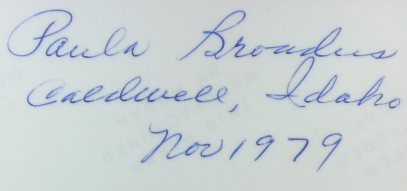 Paula Broadus
Caldwell, Idaho
Nov 1979